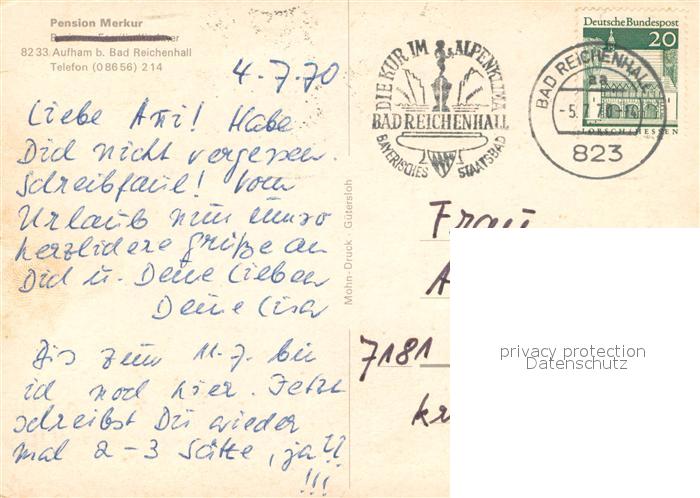 Pension Merkur
8233 Aufham b. Bad Reichenhall
Telefon (08656) 214
4.7.70
Liebe Anni! Habe
Dich nicht vergessen.
Schreibfaul! Vom
Urlaub nun umso
herzlichere Grüße an
Dich u. Deine Lieben
Deine Lisa
Bis zum 11.7. bin
ich noch hier. Jetzt
schreibst Du wieder
mal 2-3 Sätze, ja!!
!!!
Mohn-Druck · Gütersloh
DIE KUR IM ALPENKLIMA
BAD REICHENHALL
BAYERISCHES STAATSBAD
Deutsche Bundespost
20
LORSCH/HESSEN
BAD REICHENHALL
aa
-5.7.70-14
823
Frau
A
7181
kr
privacy protection
Datenschutz